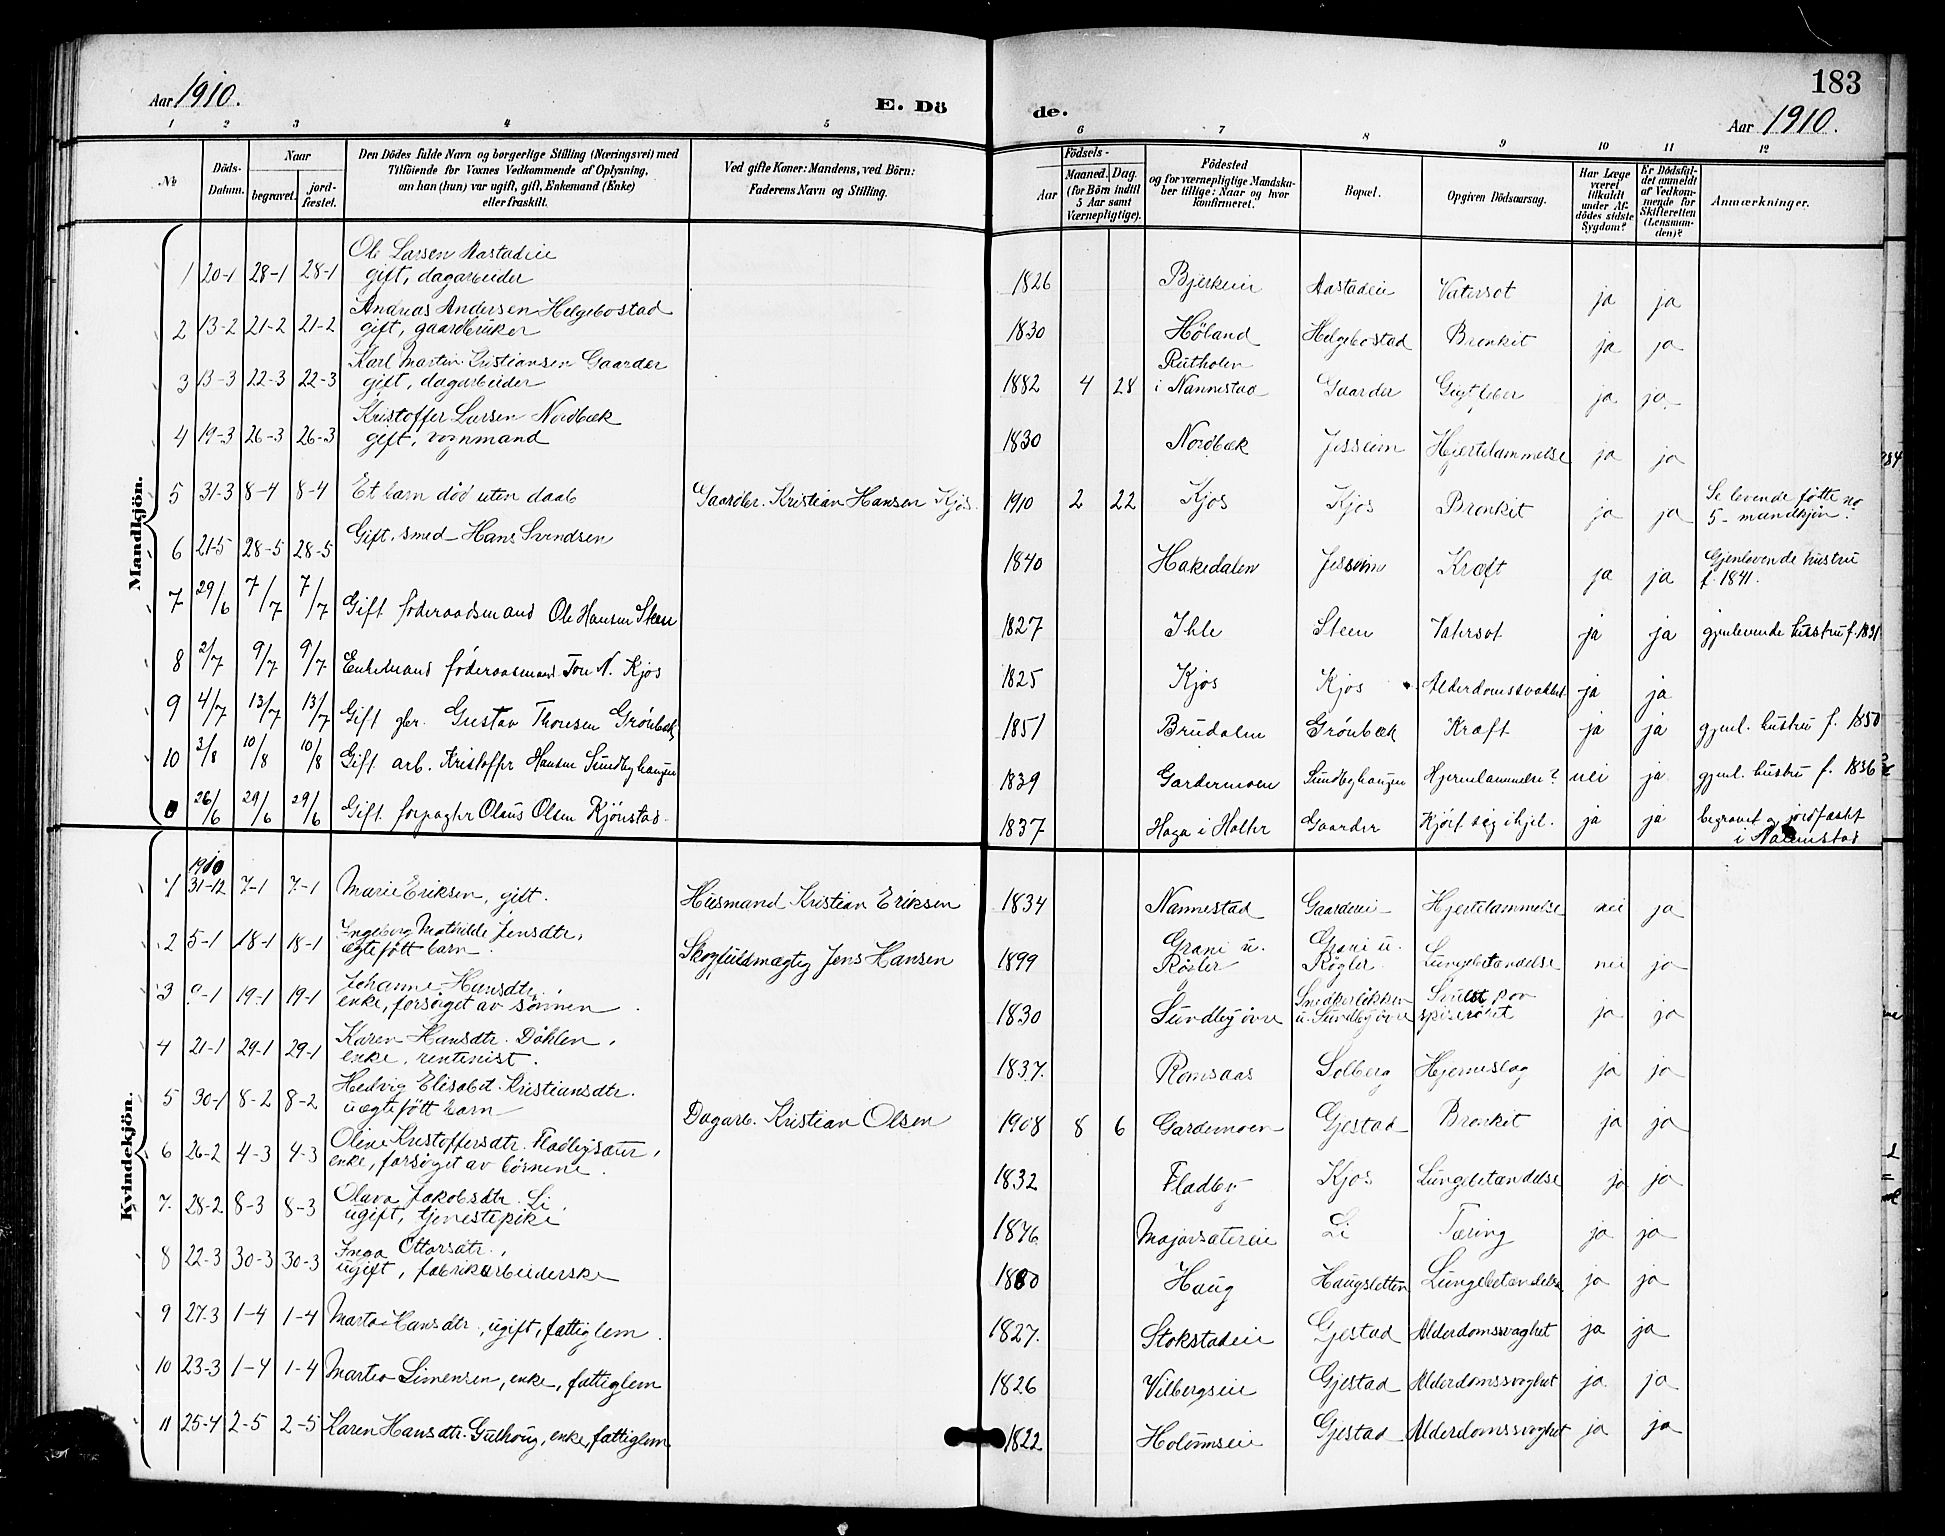 183
Aar 1910.
E. Dö
de.
Aar 1910.
1 2 3 4 5 6 7 8 9 10 11 12
No
Döds-Datum.
Naar
begravet.
jord-fæstet.
Den Dödes fulde Navn og borgerlige Stilling (Næringsvei) med
Tilföiende for Voxnes Vedkommende af Oplysning,
om han (hun) var ugift, gift, Enkemand (Enke)
eller fraskilt.
Ved gifte Koner: Mandens, ved Börn:
Faderens Navn og Stilling.
Födsels-
Aar
Maaned. Dag.
(for Börn indtil
5 Aar samt
Værnepligtige).
Födested
og for værnepligtige Mandska-
ber tillige: Naar og hvor
konfirmeret.
Bopæl.
Opgiven Dödsaarsag.
Har Læge
været
tilkaldt
under Af-
dödes sidste
Sygdom?
Er Dödsfal-
det anmeldt
af Vedkom-
mende for
Skifteretten
(Lensman-
den)?
Anmærkninger.
Mandkjön.
1 20-1 28-1 28-1 Ole Larsen Aastadeie gift, dagarbeider 1826 Bjerkeeie Aastadeie Vatersot ja ja
2 13-2 21-2 21-2 Andreas Andersen Helgebostad gift, gaardbruker 1830 Høland Helgebostad Bronkit ja ja
3 13-3 22-3 22-3 Karl Martin Kristiansen Gaarder gift, dagarbeider 1882 4 28 Rutholen i Nannestad Gaarder Gigtfeber ja ja
4 19-3 26-3 26-3 Kristoffer Larsen Nordbæk gift, vognmand 1830 Nordbæk Jessheim Hjertelammelse ja ja
5 31-3 8-4 8-4 Et barn død uten daab Gaardbr. Kristian Hansen Kjos. 1910 2 22 Kjos Kjos Bronkit ja ja Se levende føtte no 5 - mandkjøn.
6 21-5 28-5 28-5 Gift, smed - Hans Svendsen 1840 Hakedalen Jessheim Kræft ja ja Gjenlevende hustru f. 1841.
7 29/6 7/7 7/7 Gift føderaadsmand Ole Hansen Steen 1827 Ihle Steen Vatersot ja ja gjenlevende hustru f. 1831
8 2/7 9/7 9/7 Enkemand føderaadsmand Tore N. Kjos 1825 Kjos Kjos Alderdomssvakhet ja ja
9 4/7 13/7 13/7 Gift gbr. Gustav Thoresen Grønbæk 1851 Brudalen Grønbæk Kræft ja ja gjenl. hustru f. 1850
10 3/8 10/8 10/8 Gift arb. Kristoffer Hansen Sundbyhaugen 1839 Gardermoen Sundbyhaugen Hjernelammelse? nei ja gjenl. hustru f. 1836
26/6 29/6 29/6 Gift forpagter Olaus Olsen Kjønstad. 1837 Haga i Holter Gaarder Kjørt sig ihjel. ja ja begravet og jordfæstet i Nannestad
Kvindekjön.
1910
1 31-12 7-1 7-1 Marie Eriksen, gift. Husmand Kristian Eriksen 1834 Nannestad Gaardereie Hjertelammelse nei ja
2 5-1 18-1 18-1 Ingeborg Mathilde Jensdtr. ægteføtt barn. Skogfuldmægtig Jens Hansen 1899 Grani u. Røgler Grani u. Røgler Lungebetændelse nei ja
3 9-1 19-1 19-1 Johanne Hansdtr. enke, forsørget av sønnen 1830 Sundby øvre Snedkerløkken u. Sundby øvre Svulst paa spiserøret ja ja
4 21-1 29-1 29-1 Karen Hansdtr. Døhlen, enke, rentenist. 1837. Romsaas Solberg Hjerneslag ja ja
5 30-1 8-2 8-2 Hedvig Elisabet Kristiansdtr. uægteføtt barn Dagarb. Kristian Olsen 1908 8 6 Gardemoen Gjestad Bronkit ja ja
6 26-2 4-3 4-3 Oline Kristoffersdtr. Fladbysæter, enke, forsørget av børnene. 1832 Fladby Kjos Lungebetændelse ja ja
7. 28-2 8-3 8-3 Olava Jakobsdtr. Li, ugift, tjenestepike 1876. Majorsætereie Li Tæring ja ja
8 22-3 30-3 30-3 Inga Ottarsdtr., ugift, fabrikarbeiderske 1880 Haug Haugsletten Lungebetændelse ja ja
9 27-3 1-4 1-4 Marta Hansdtr., ugift, fattiglem. 1827. Stokstadeie Gjestad Alderdomssvaghet ja ja
10 23-3 1-4 1-4 Martea Simensen, enke, fattiglem 1826 Vilbergseie Gjestad Alderdomssvaghet ja ja
11 25-4 2-5 2-5 Karen Hansdtr. Gulhaug, enke, fattiglem 1822 Holumseie Gjestad Alderdomssvaghet ja ja